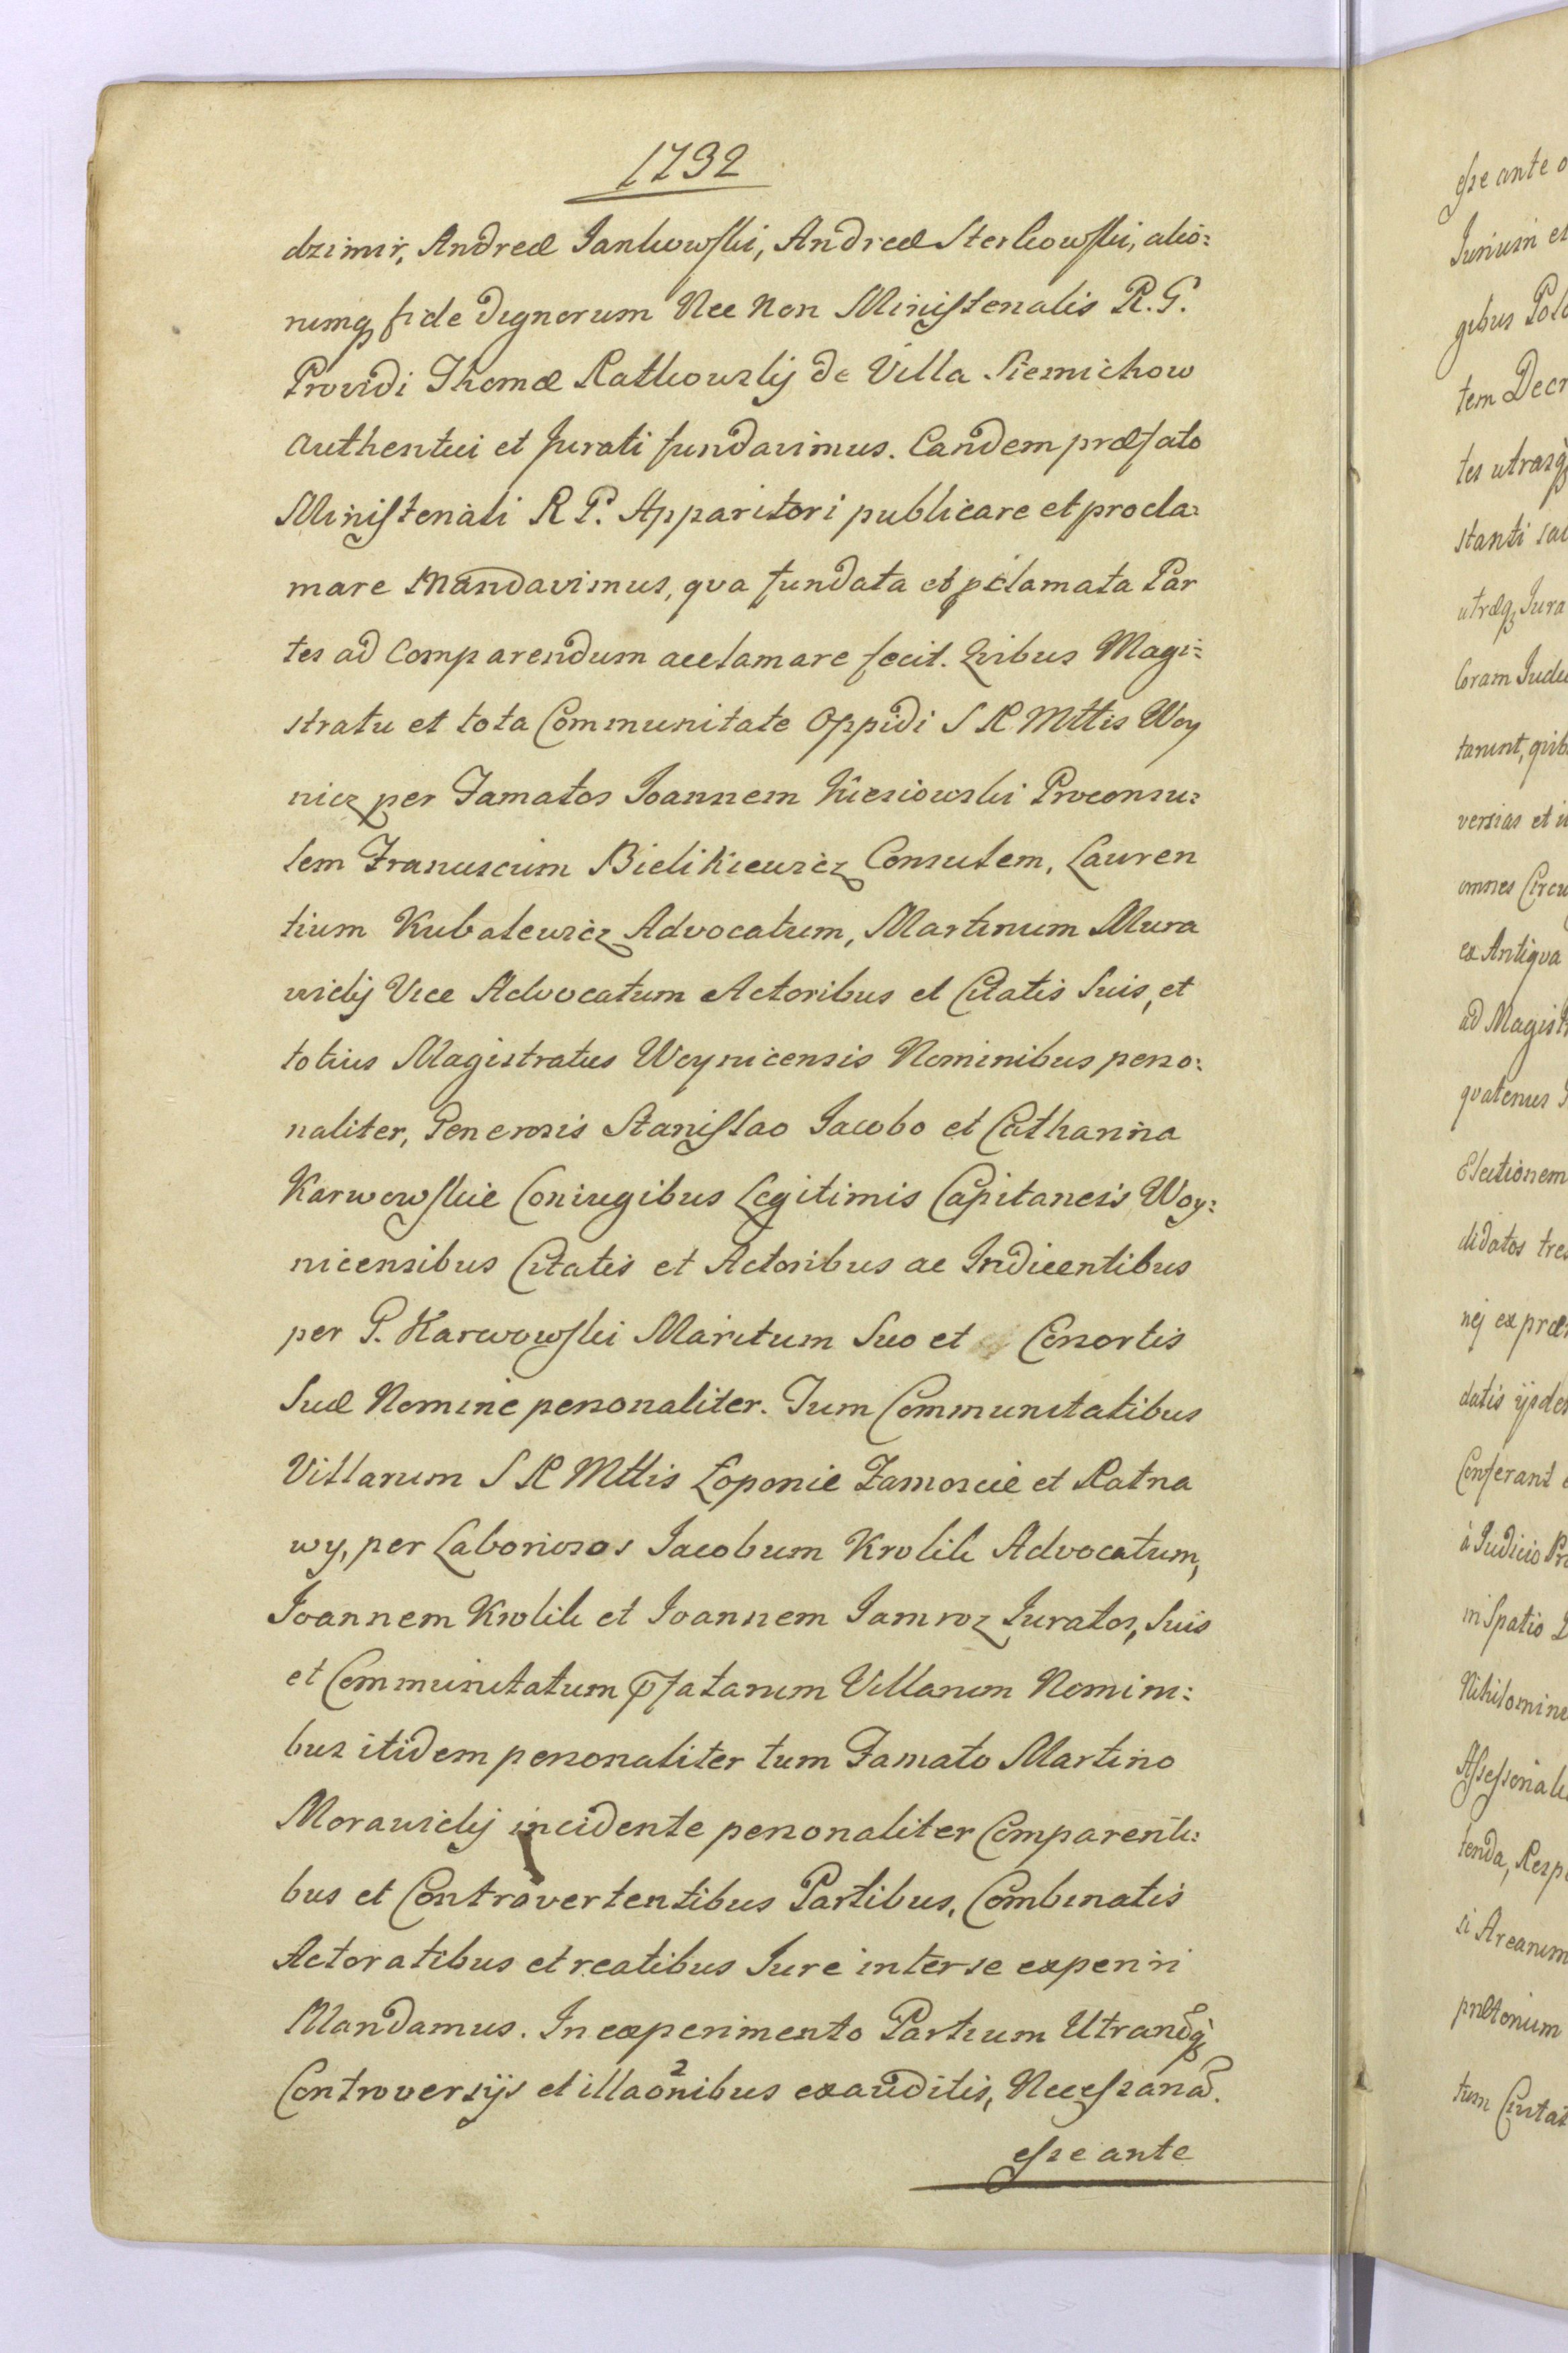 1792
dzimir, Andreæ Jankowski, Andreæ Sterkowski, alio=
rumq fide dignorum Nec Non Ministerialis R. G.
Providi Thomæ Ratkowsky de Villa Siemichow
authentici et Jurati fundavimus. Eandem præfato
Ministeriali R P. Apparitori publicare et procla=
mare Mandavimus, qva fundata et pclamata Par
tes ad Comparendum acclamare fecit. Qvibus Magi=
stratu et tota Communitate Oppidi S R Mttis Woy
nicz per Famatos Joannem Kiesiowski Proconsu=
lem Franciscum Bielikiewicz Consulem, Lauren
tium Kubalewicz Advocatum, Martinum Mura
wicky Vice Advocatum Actoribus et Citatis Suis, et
totius Magistratus Woynicensis Nominibus perso=
naliter, Generosis Stanislao Jacobo et Catharina
Karwowskie Coniugibus Legitimis Capitaneis Woy=
nicensibus Citatis et Actoribus ac Indicentibus
per G. Karwowski Maritum Suo et Consortis
Suæ Nomine personaliter. Tum Communitatibus
Villarum S R Mttis Łoponie Zamoscie et Ratna
wy, per Laboriosos Jacobum Krolik Advocatum,
Joannem Krolik et Joannem Jamroz Juratos, Suis
et Communitatum pfatarum Villarum Nomini=
bus itidem personaliter tum Famato Martino
Morawicky incidente personaliter Comparenti=
bus et Controvertentibus Partibus, Combinatis
Actoratibus et reatibus Jure inter se experiri
Mandamus. In experimento Partium Utrarq
Controversijs et illaonibus exauditis, Necessaria
esse ante
esse ante
Jurium et
gibus
tem
tes utrasq
stanti
utræq Jura
Coram
versias et
omnes
ex Antiqva
ad
qvatenus
Electionem
didatos
nej ex
datis
Conferant
à Judicio
in Spatio
tenda,
si
tum